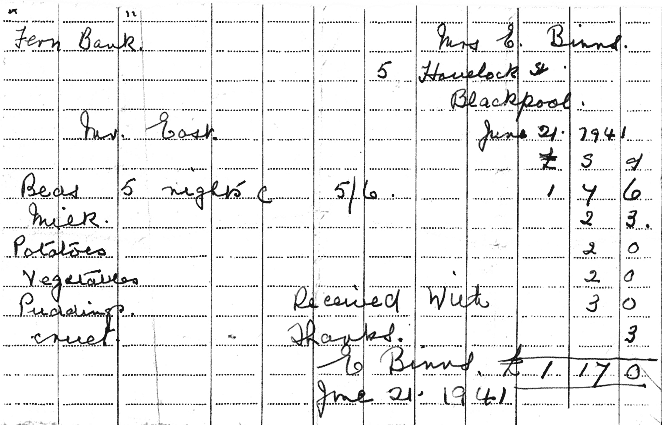 "Fern Bank." Mrs E. Binns.
5 Havelock St.
Blackpool.
Mr. East. June 21. 1941
£ S d
Beds 5 nights @ 5/6. 1 7 6
Milk. 2 3.
Potatoes 2 0
Vegetables 2 0
Puddings. Received With 3 0
cruet. Thanks. 3
E Binns. £ 1 17 0
June 21. 1941